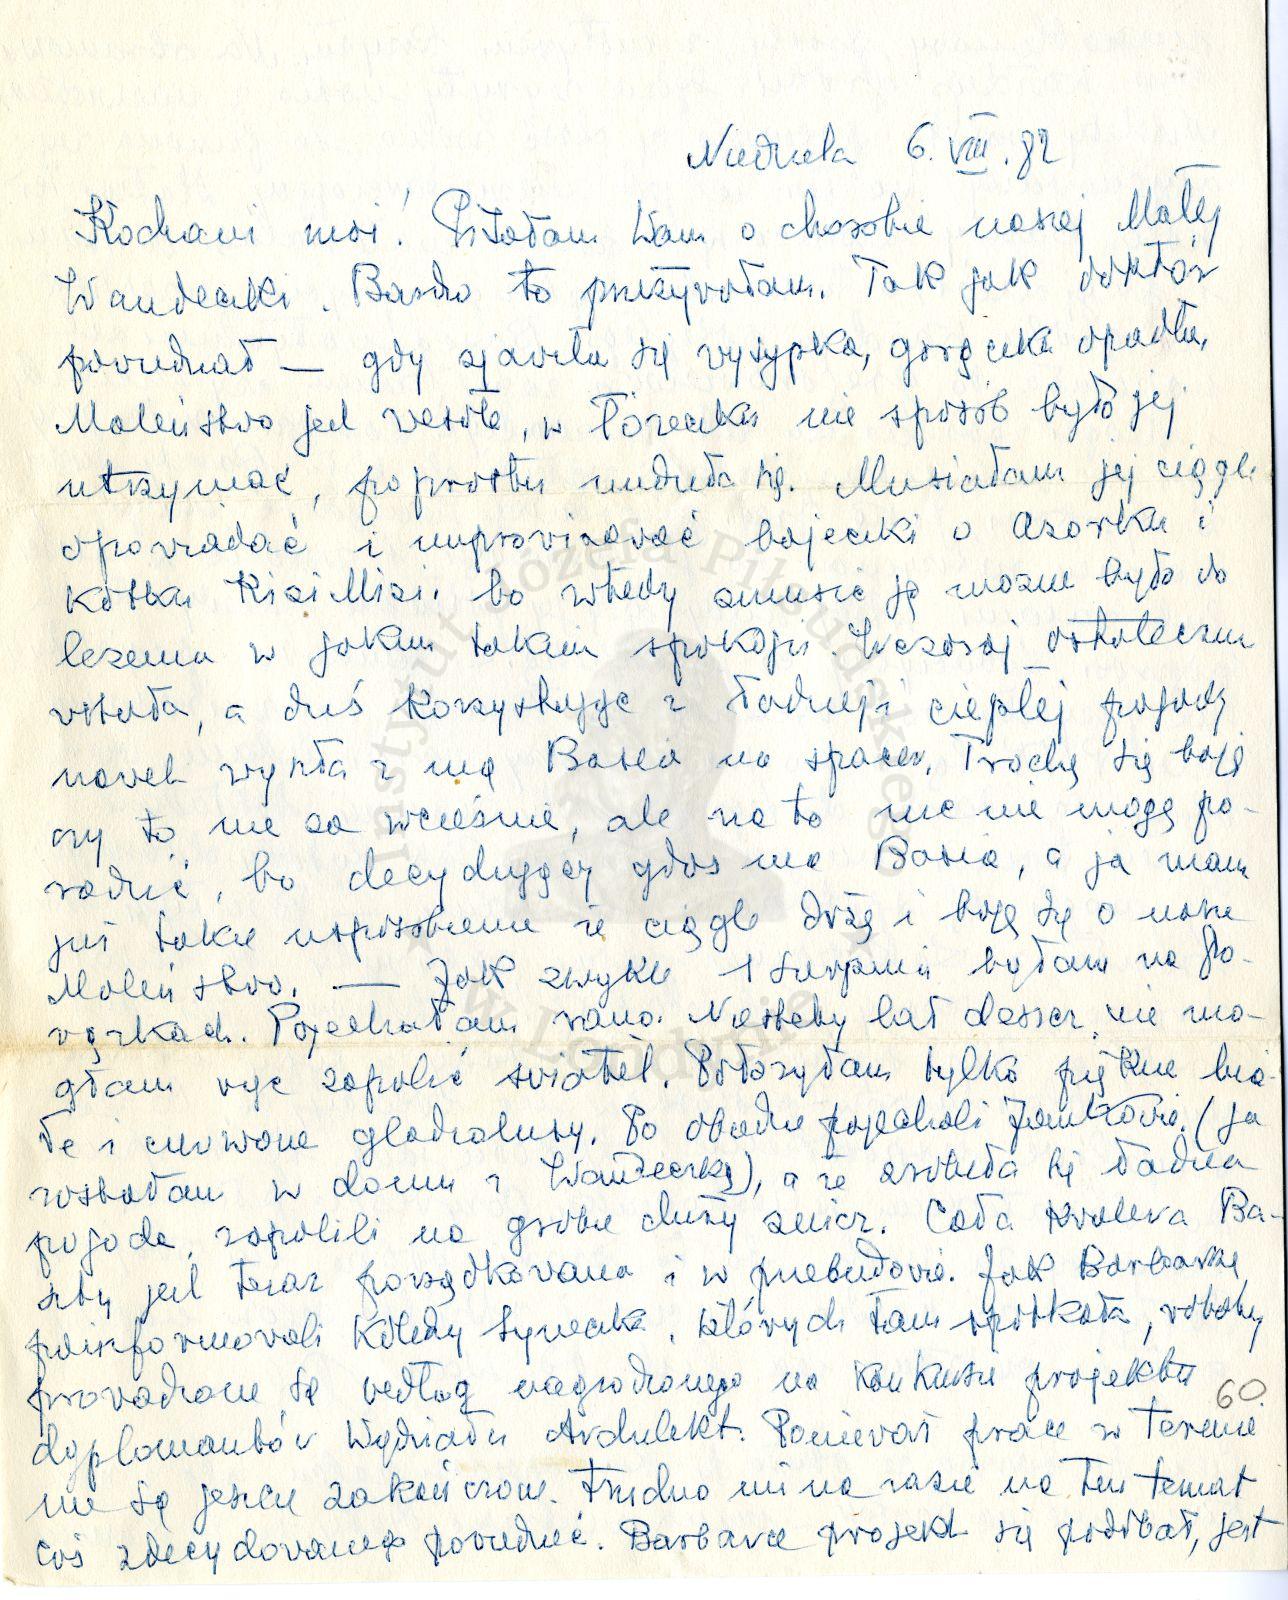 Niedziela 6.VIII.82
Kochani moi! Pisałam Wam o chorobie naszej Małej
Wandeczki. Bardzo to przeżywałam. Tak jak doktór
powiedział — gdy zjawiła się wysypka, gorączka opadła,
Maleństwo jest wesołe, w łóżeczku nie sposób było jej
utrzymać, poprostu nudziła się. Musiałam jej ciągle
opowiadać i improwizować bajeczki o Azorku i
kotku Kizi Mizi. bo wtedy zmusić ją można było do
leżenia w jakim takim spokoju. Wczoraj ostatecznie
wstała, a dziś korzystając z ładnej i ciepłej pogody
nawet wyszła z nią Basia na spacer. Trochę się boję
czy to nie za wcześnie, ale na to nic nie mogę po-
radzić, bo decydujący głos ma Basia, a ja mam
już takie usposobienie że ciągle drżę i boję się o nasze
Maleństwo. — Jak zwykle 1 sierpnia byłam na Po-
wązkach. Pojechałam rano. Niestety lał deszcz, nie mo-
głam więc zapalić świateł. Położyłam tylko piękne bia-
łe i czerwone gladiolusy. Po obiedzie pojechali Jankowie (ja
zostałam w domu z Wandeczką), a że zrobiła się ładna
pogoda, zapalili na grobie duży znicz. Cała kwatera Ba-
szty jest teraz porządkowana i w przebudowie. Jak Barbarę
poinformowali Koledzy Syneczka, których tam spotkała, roboty
prowadzone są według nagrodzonego na konkursie projektu
dyplomantów Wydziału Architekt. Ponieważ prace w terenie
nie są jeszcze zakończone. trudno mi na razie na ten temat
coś zdecydowanego powiedzieć. Barbarze projekt się podobał, jest
60
Instytut Józefa Piłsudskiego
w Londynie